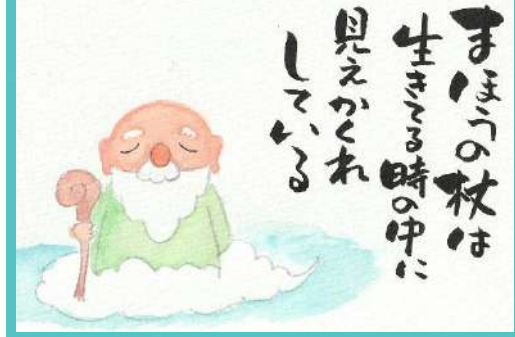 まほうの杖は
生きてる時の中に
見えかくれ
している